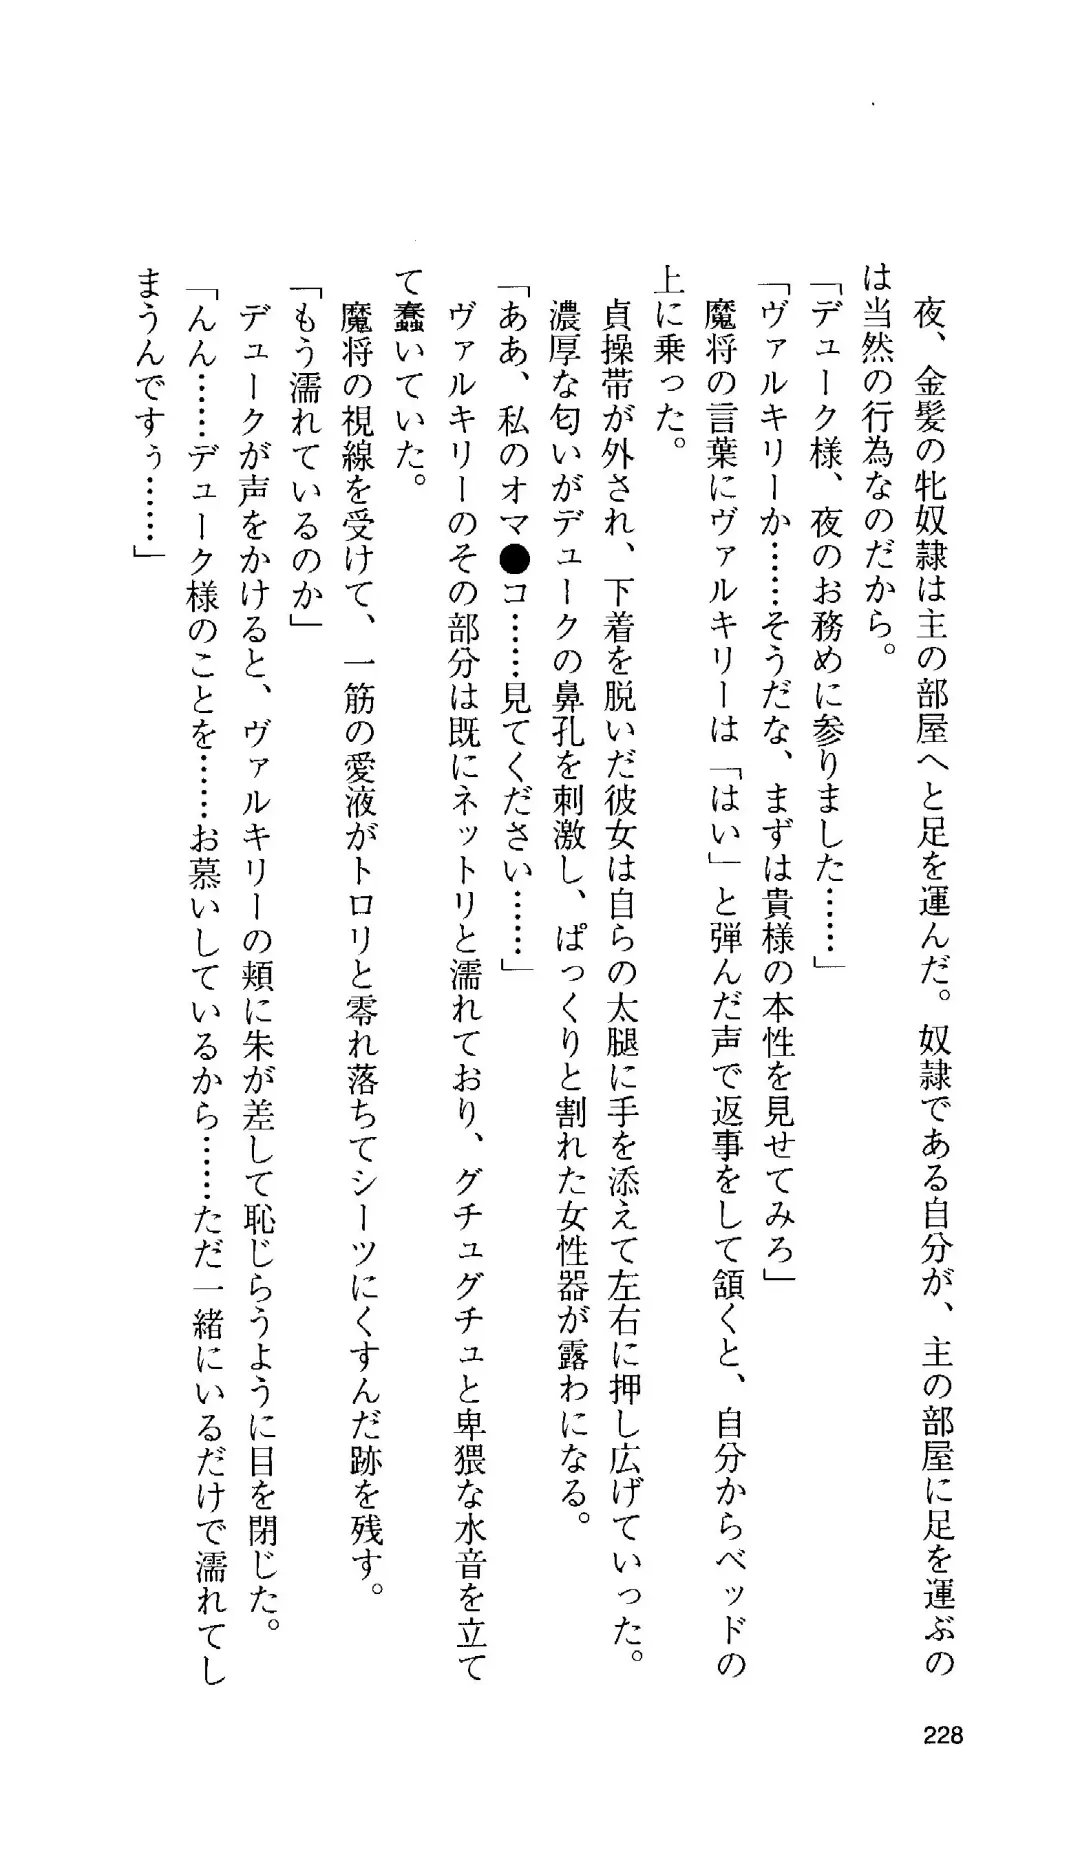 夜、金髪の牝奴隷は主の部屋へと足を運んだ。奴隷である自分が、主の部屋に足を運ぶの
は当然の行為なのだから。
「デューク様、夜のお務めに参りました……」
「ヴァルキリーか……そうだな、まずは貴様の本性を見せてみろ」
魔将の言葉にヴァルキリーは「はい」と弾んだ声で返事をして頷くと、自分からベッドの
上に乗った。
貞操帯が外され、下着を脱いだ彼女は自らの太腿に手を添えて左右に押し広げていった。
濃厚な匂いがデュークの鼻孔を刺激し、ぱっくりと割れた女性器が露わになる。
「ああ、私のオマ●コ……見てください……」
ヴァルキリーのその部分は既にネットリと濡れており、グチュグチュと卑猥な水音を立て
て蠢いていた。
魔将の視線を受けて、一筋の愛液がトロリと零れ落ちてシーツにくすんだ跡を残す。
「もう濡れているのか」
デュークが声をかけると、ヴァルキリーの頬に朱が差して恥じらうように目を閉じた。
「んん……デューク様のことを……お慕いしているから……ただ一緒にいるだけで濡れてし
まうんですぅ……」
228